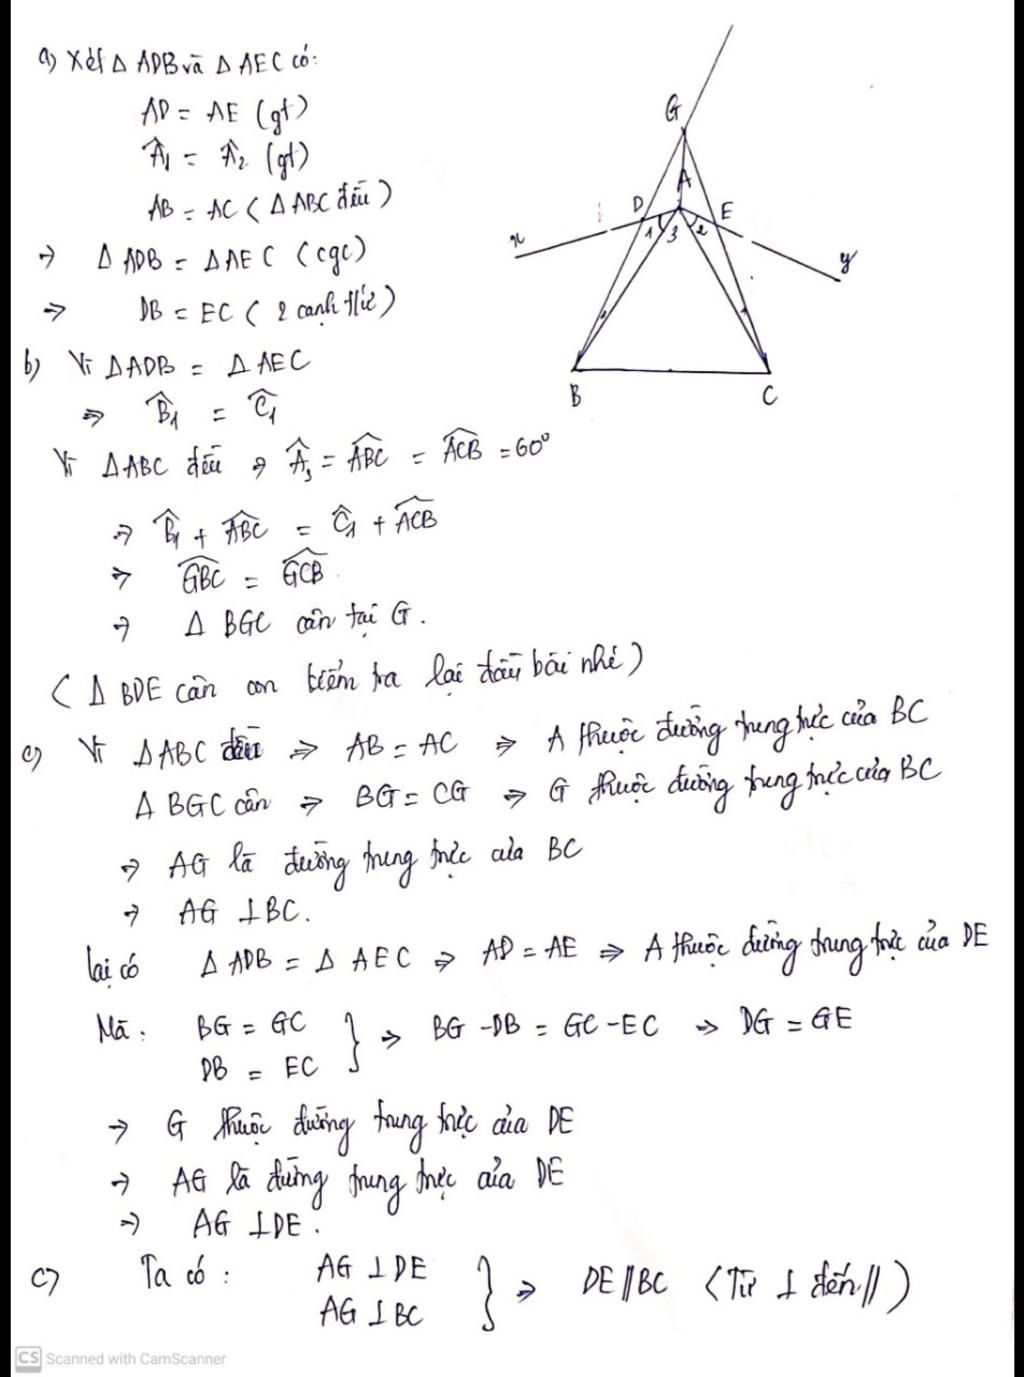 a) Xét Δ ADB và Δ AEC có:
AD = AE (gt)
Â1 = Â2 (gt)
AB = AC (Δ ABC đều)
⇒ Δ ADB = Δ AEC (cgc)
⇒ DB = EC (2 cạnh t/ứ)
G
A
D
E
1
3
2
x
y
1
1
B
C
b) Vì ΔADB = ΔAEC
⇒ B̂1 = Ĉ1
Vì ΔABC đều ⇒ Â3 = ABC = ACB = 60°
⇒ B̂1 + ABC = Ĉ1 + ACB
⇒ GBC = GCB
⇒ Δ BGC cân tại G.
(Δ BDE cân con kiểm tra lại đầu bài nhé)
c) Vì ΔABC đều ⇒ AB = AC ⇒ A thuộc đường trung trực của BC
Δ BGC cân ⇒ BG = CG ⇒ G thuộc đường trung trực của BC
⇒ AG là đường trung trực của BC
⇒ AG ⊥ BC.
lại có Δ ADB = Δ AEC ⇒ AD = AE ⇒ A thuộc đường trung trực của DE
Mà: BG = GC
DB = EC } ⇒ BG - DB = GC - EC ⇒ DG = GE
⇒ G thuộc đường trung trực của DE
⇒ AG là đường trung trực của DE
⇒ AG ⊥ DE.
c) Ta có: AG ⊥ DE
AG ⊥ BC } ⇒ DE // BC (Từ ⊥ đến //)
CS Scanned with CamScanner